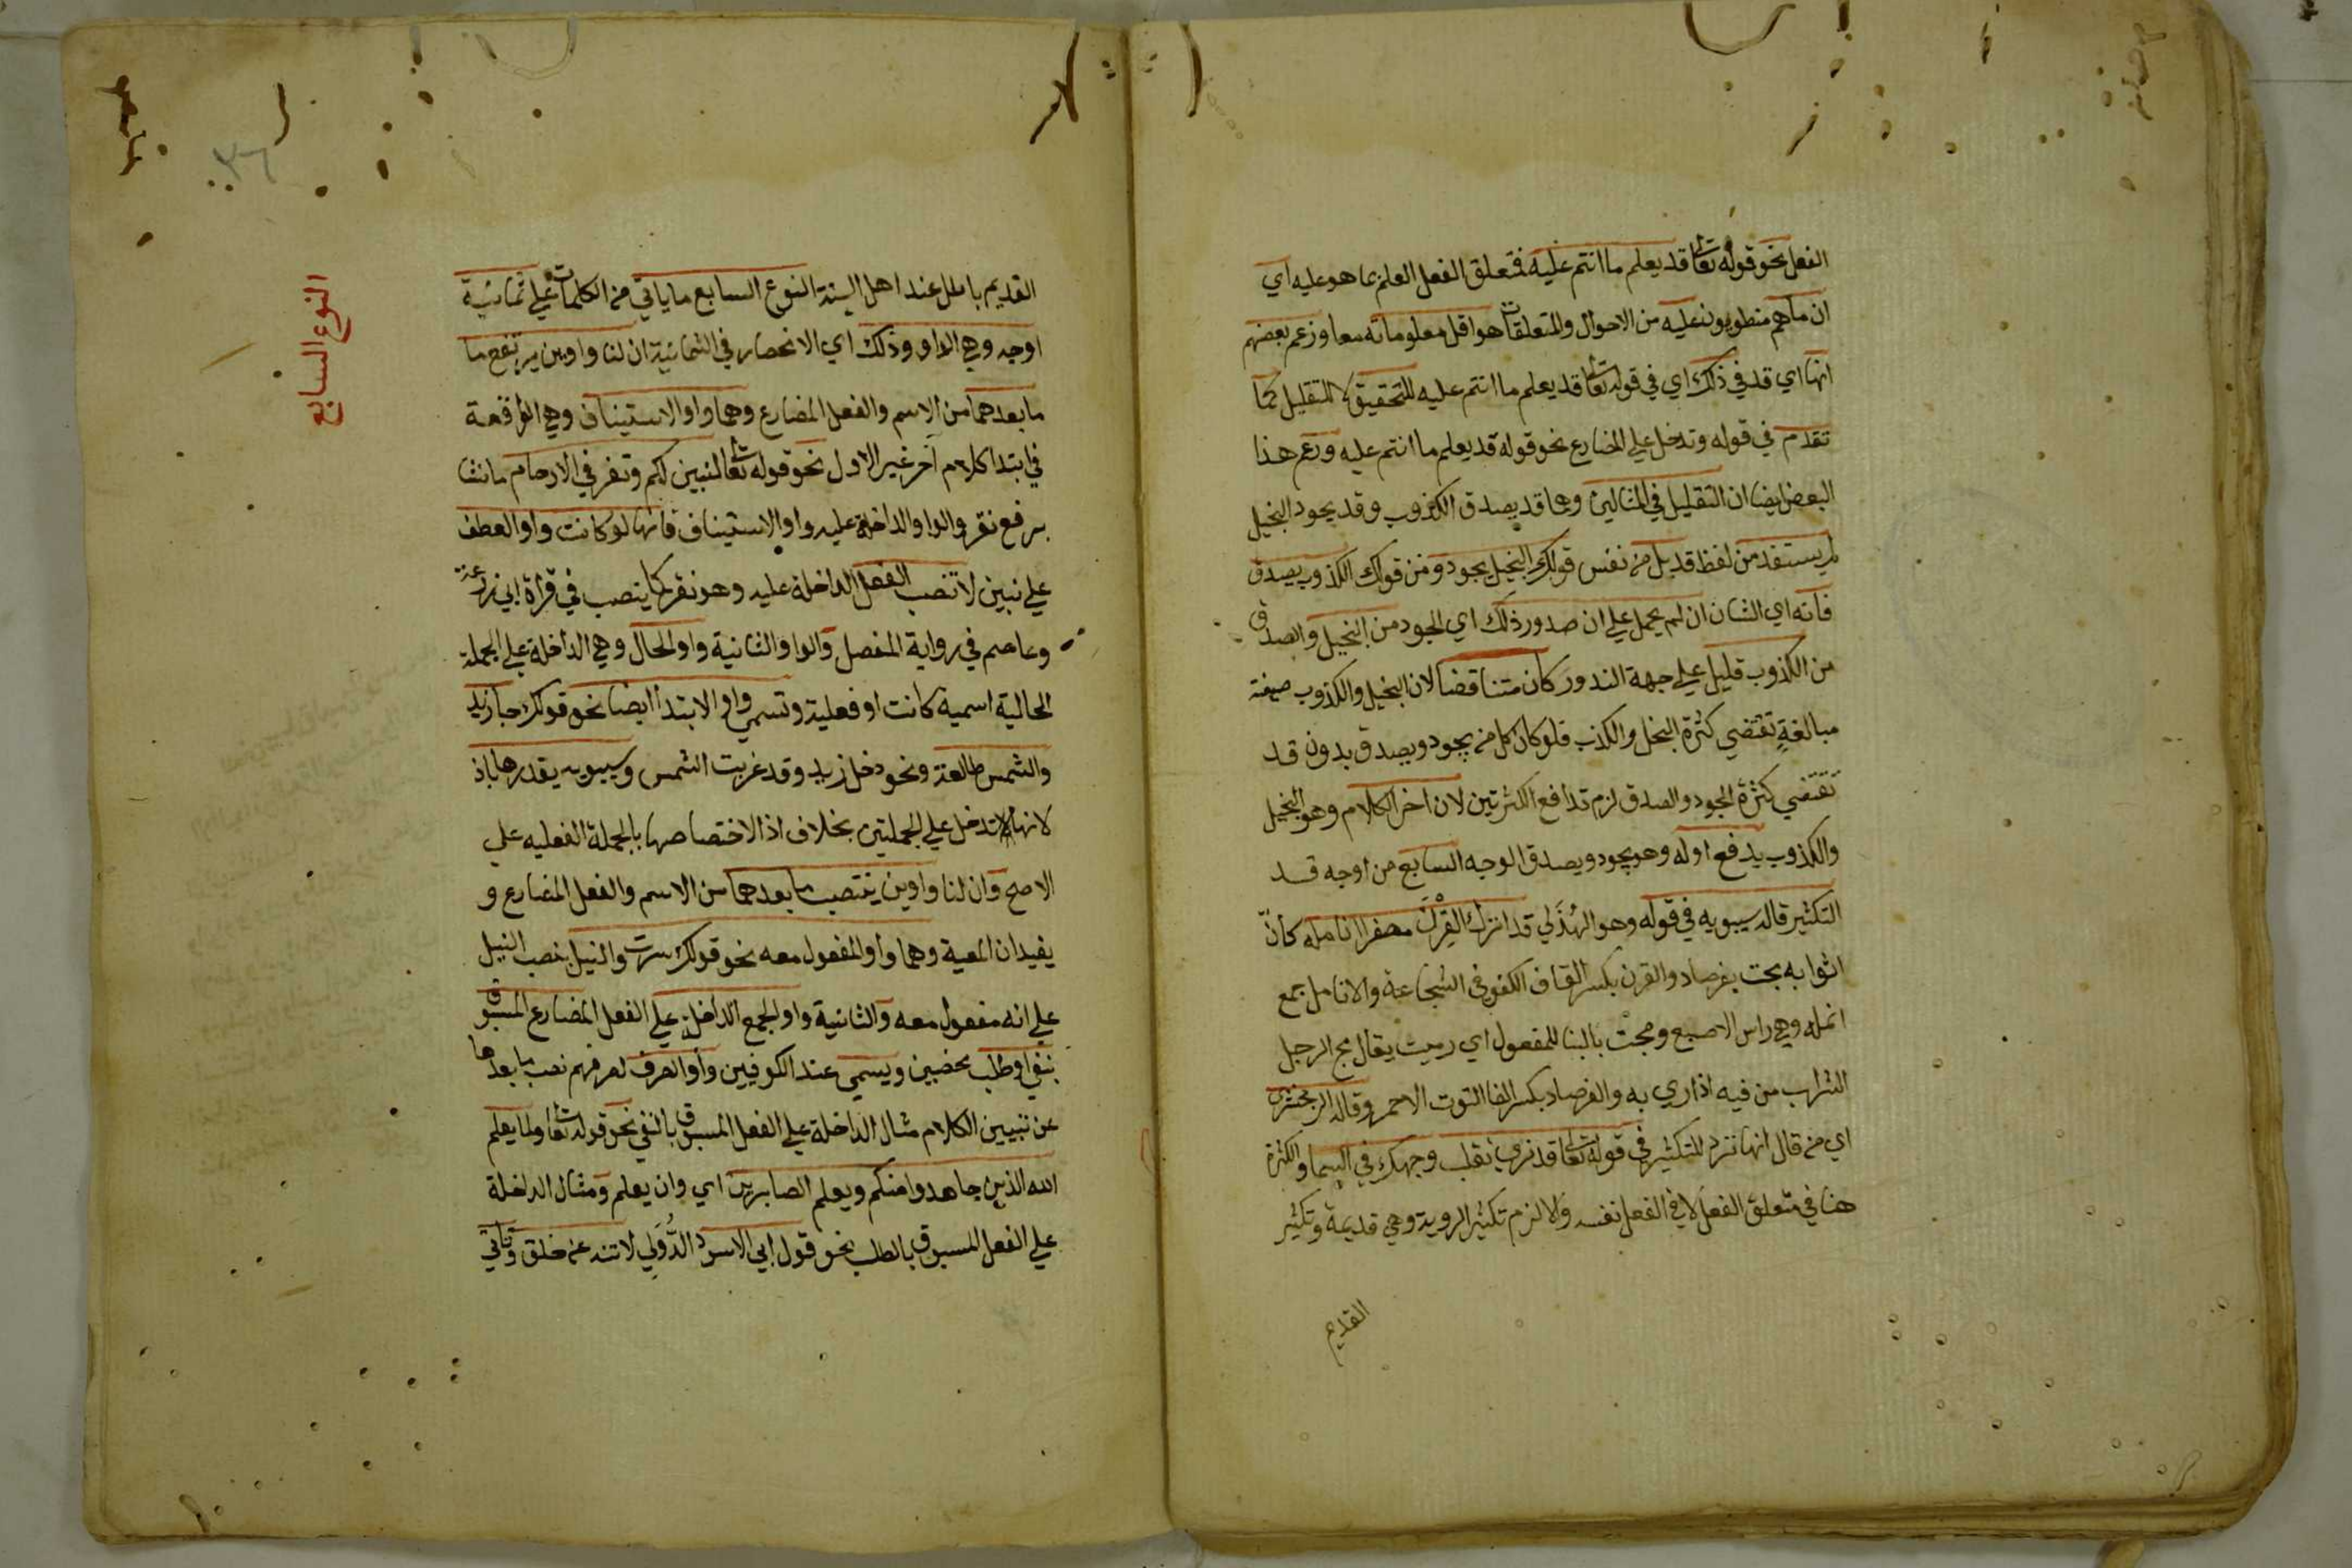 الفعل نحو قوله تعا قد يعلم ما انتم عليه فتعلق الفعل العلم بما هو عليه اي
ان ما هم منطوون عليه من الاحوال والمتعلقات هو اقل معلوماته معا وزعم بعضهم
انها اي قد في ذلك اي في قوله تعا قد يعلم ما انتم عليه للتحقيق لا للتقليل كما
تقدم في قوله وتدخل علي المضارع نحو قوله قد يعلم ما انتم عليه وزعم هذا
البعض ايضا ان التقليل في المثالين وهما قد يصدق الكذوب وقد يجود البخيل
لم يستفد من لفظ قد بل من نفس قولك البخيل يجود ومن قولك الكذوب يصدق
فانه اي الشان ان لم يحمل علي ان صدور ذلك اي الجود من البخيل والصدق
من الكذوب قليل علي جهة الندور كان متناقضا لان البخيل والكذوب صيغة
مبالغة تقتضي كثرة البخل والكذب فلو كان كل من يجود ويصدق بدون قد
تقتضي كثرة الجود والصدق لزم تدافع الكثرتين لان اخر الكلام وهو البخيل
والكذوب يدفع اوله وهو يجود ويصدق الوجه السابع من اوجه قد
التكثير قاله سيبويه في قوله وهو الهُذَلي قد اترك القِرْنَ مصفرا انامله كانّ
اثوابه مجت بفرصاد والقرن بكسر القاف الكفو في الشجاعة والانامل جمع
انمله وهي راس الاصبع ومجت بالبنا للمفعول اي رميت يقال مج الرجل
الشراب من فيه اذا رمي به والفرصاد بكسر الفا التوت الاحمر وقاله الزمخشري
اي من قال انها ترد للتكثير في قوله تعا قد نري تقلب وجهك في السما والكثرة
هنا في متعلق الفعل لا في الفعل نفسه والا لزم تكثير الروية وهي قديمة وتكثير
القديم
النوع السابع
٣٦
القديم باطل عند اهل السنة النوع السابع ما ياتي من الكلمات علي ثمانية
اوجه وهي الواو وذلك اي الانحصار في الثمانية ان لنا واوين يرتفع ما
ما بعدهما من الاسم والفعل المضارع وهما واو الاستيناف وهي الواقعة
في ابتدا كلام آخر غير الاول نحو قوله تعا لنبين لكم ونقر في الارحام ما نشا
برفع نقر والواو الداخلة عليه واو الاستيناف فانها لو كانت واو العطف
علي نبين لانتصب الفعل الداخلة عليه وهو نقر كما ينصب في قراة ابي زرعة
وعاصم في رواية المفضل والواو الثانية واو الحال وهي الداخلة علي الجملة
الحالية اسمية كانت او فعلية وتسمي واو الابتدا ايضا نحو قولك جا زيد
والشمس طالعة ونحو دخل زيد وقد غربت الشمس وسيبويه يقدرها باذ
لانها تدخل علي الجملتين بخلاف اذا لاختصاصها بالجملة الفعليه علي
الاصح وان لنا واوين ينتصب ما بعدهما من الاسم والفعل المضارع و
يفيدان المعية وهما واو المفعول معه نحو قولك سرت والنيل بنصب النيل
علي انه مفعول معه والثانية واو الجمع الداخل علي الفعل المضارع المسبوق
بنفي او طلب محضين ويسمي عند الكوفيين واو الصرف لصرفهم نصب ما بعدها
عن تبيين الكلام مثال الداخلة علي الفعل المسبوق بالنفي نحو قوله تعا ولما يعلم
الله الذين جاهدوا منكم ويعلم الصابرين اي وان يعلم ومثال الداخلة
علي الفعل المسبوق بالطلب نحو قول ابي الاسود الدُّوَلي لا تنه عن خلق وتاتي